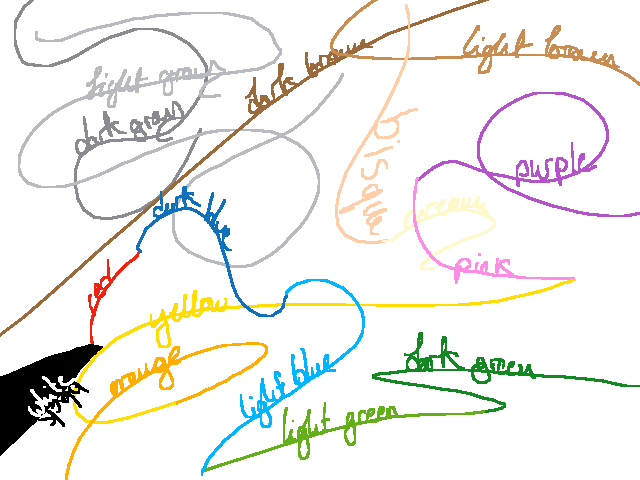 light brown
light gray
dark brown
dark gray
bisque
purple
dark blue
creamy
pink
red
yellow
dark green
orange
light blue
light green